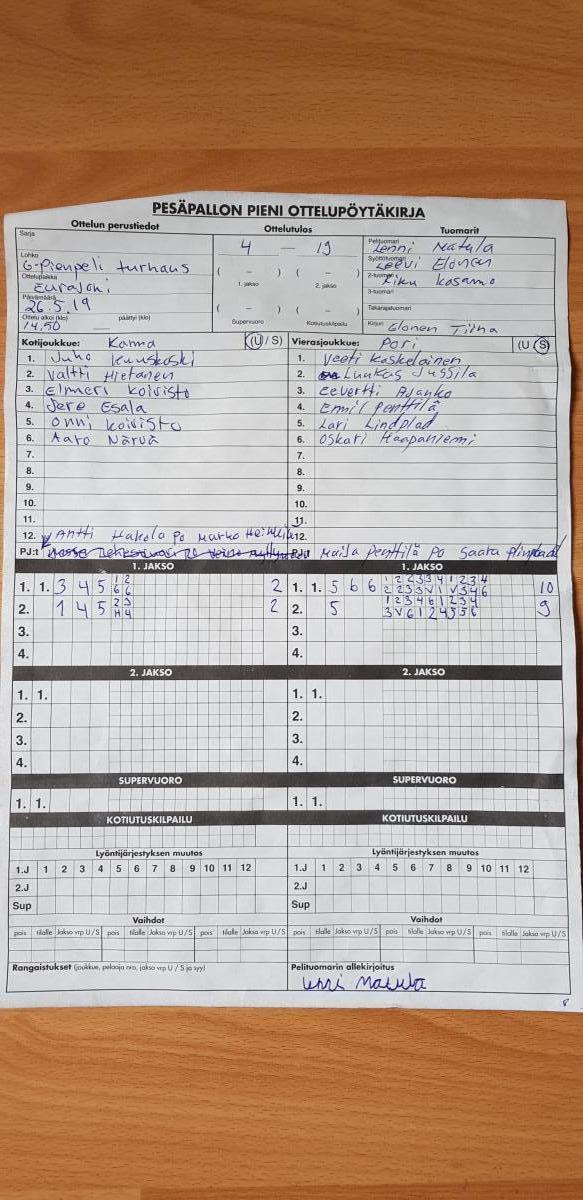 PESÄPALLON PIENI OTTELUPÖYTÄKIRJA
Ottelun perustiedot Ottelutulos Tuomarit
Sarja
Lohko
G-Pienpeli turnaus
Ottelupaikka
Eurajoki
Päivämäärä
26.5.19
Ottelu alkoi (klo) päättyi (klo)
14.50
4 — 19
( – ) ( – )
1. jakso 2. jakso
( – ) ( – )
Supervuoro Kotiutuskilpailu
Pelituomari
Lenni Matula
Syöttötuomari
Leevi Elonen
2-tuomari
Riku Kosamo
3-tuomari
Takarajatuomari
Kirjuri Elonen Tiina
Kotijoukkue: Kaima (U / S)
1. Juho Kuuskoski
2. Valtti Hietanen
3. Elmeri Koivisto
4. Jere Esala
5. Onni Koivisto
6. Aaro Närvä
7.
8.
9.
10.
11.
12. Antti Hakola PO Marko
PJ:t
Vierasjoukkue: Pori (U / S)
1. Veeti Kaskelainen
2. Luukas Jussila
3. Eevertti Ajanko
4. Emil Penttilä
5. Lari Lindblad
6. Oskari Haapaniemi
7.
8.
9.
10.
11.
12.
PJ:t Maija Penttilä PO Saara
1. JAKSO 1. JAKSO
1. 1. 3 4 5 1 2 6 6 2
2. 1 4 5 2 3 H 4 2
3.
4.
1. 1. 5 6 6 1 2 2 3 3 4 1 2 3 4 2 2 3 3 V 1 V 3 4 6 10
2. 5 1 2 3 4 6 1 2 3 4 3 V 6 1 2 4 5 5 6 9
3.
4.
2. JAKSO 2. JAKSO
1. 1. 1. 1.
2. 2.
3. 3.
4. 4.
SUPERVUORO SUPERVUORO
1. 1. 1. 1.
KOTIUTUSKILPAILU KOTIUTUSKILPAILU
Lyöntijärjestyksen muutos Lyöntijärjestyksen muutos
1.J 1 2 3 4 5 6 7 8 9 10 11 12 1.J 1 2 3 4 5 6 7 8 9 10 11 12
2.J 2.J
Sup Sup
Vaihdot Vaihdot
pois tilalle Jakso vrp U/S pois tilalle Jakso vrp U/S pois tilalle Jakso vrp U/S pois tilalle Jakso vrp U/S pois tilalle Jakso vrp U/S pois tilalle Jakso vrp U/S
Rangaistukset (joukkue, pelaaja nro, jakso vrp U / S ja syy) Pelituomarin allekirjoitus
Lenni Matula